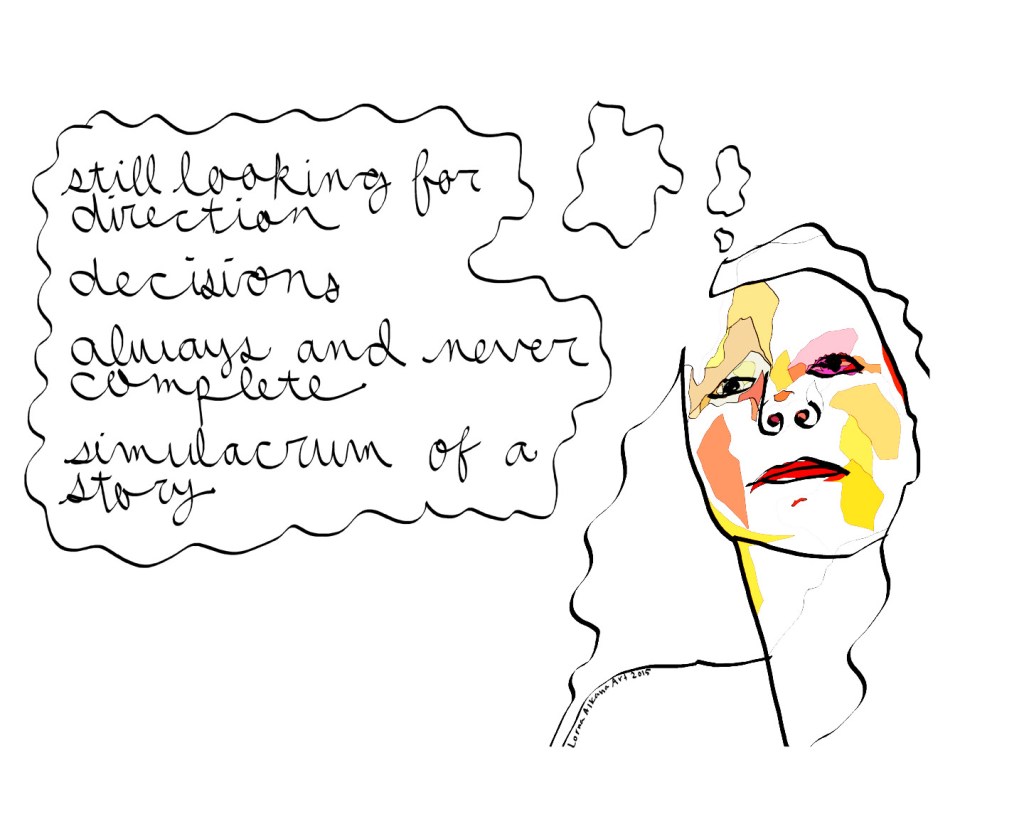 still looking for
direction
decisions
always and never
complete
simulacrum of a
story
Lorna Alkana Art 2015